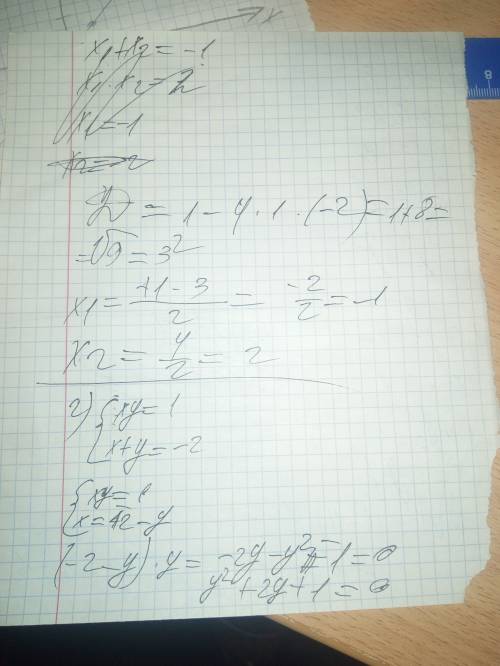 x1+x2=-1
x1·x2=2
x1=-1
x2=2
D=1-4·1·(-2)=1+8=
=√9=3²
x1=+1-3/2=-2/2=-1
x2=4/2=2
2){xy=1
{x+y=-2
{xy=1
{x=-2-y
(-2-y)·y=-2y-y²-1=0
y²+2y+1=0
8
x